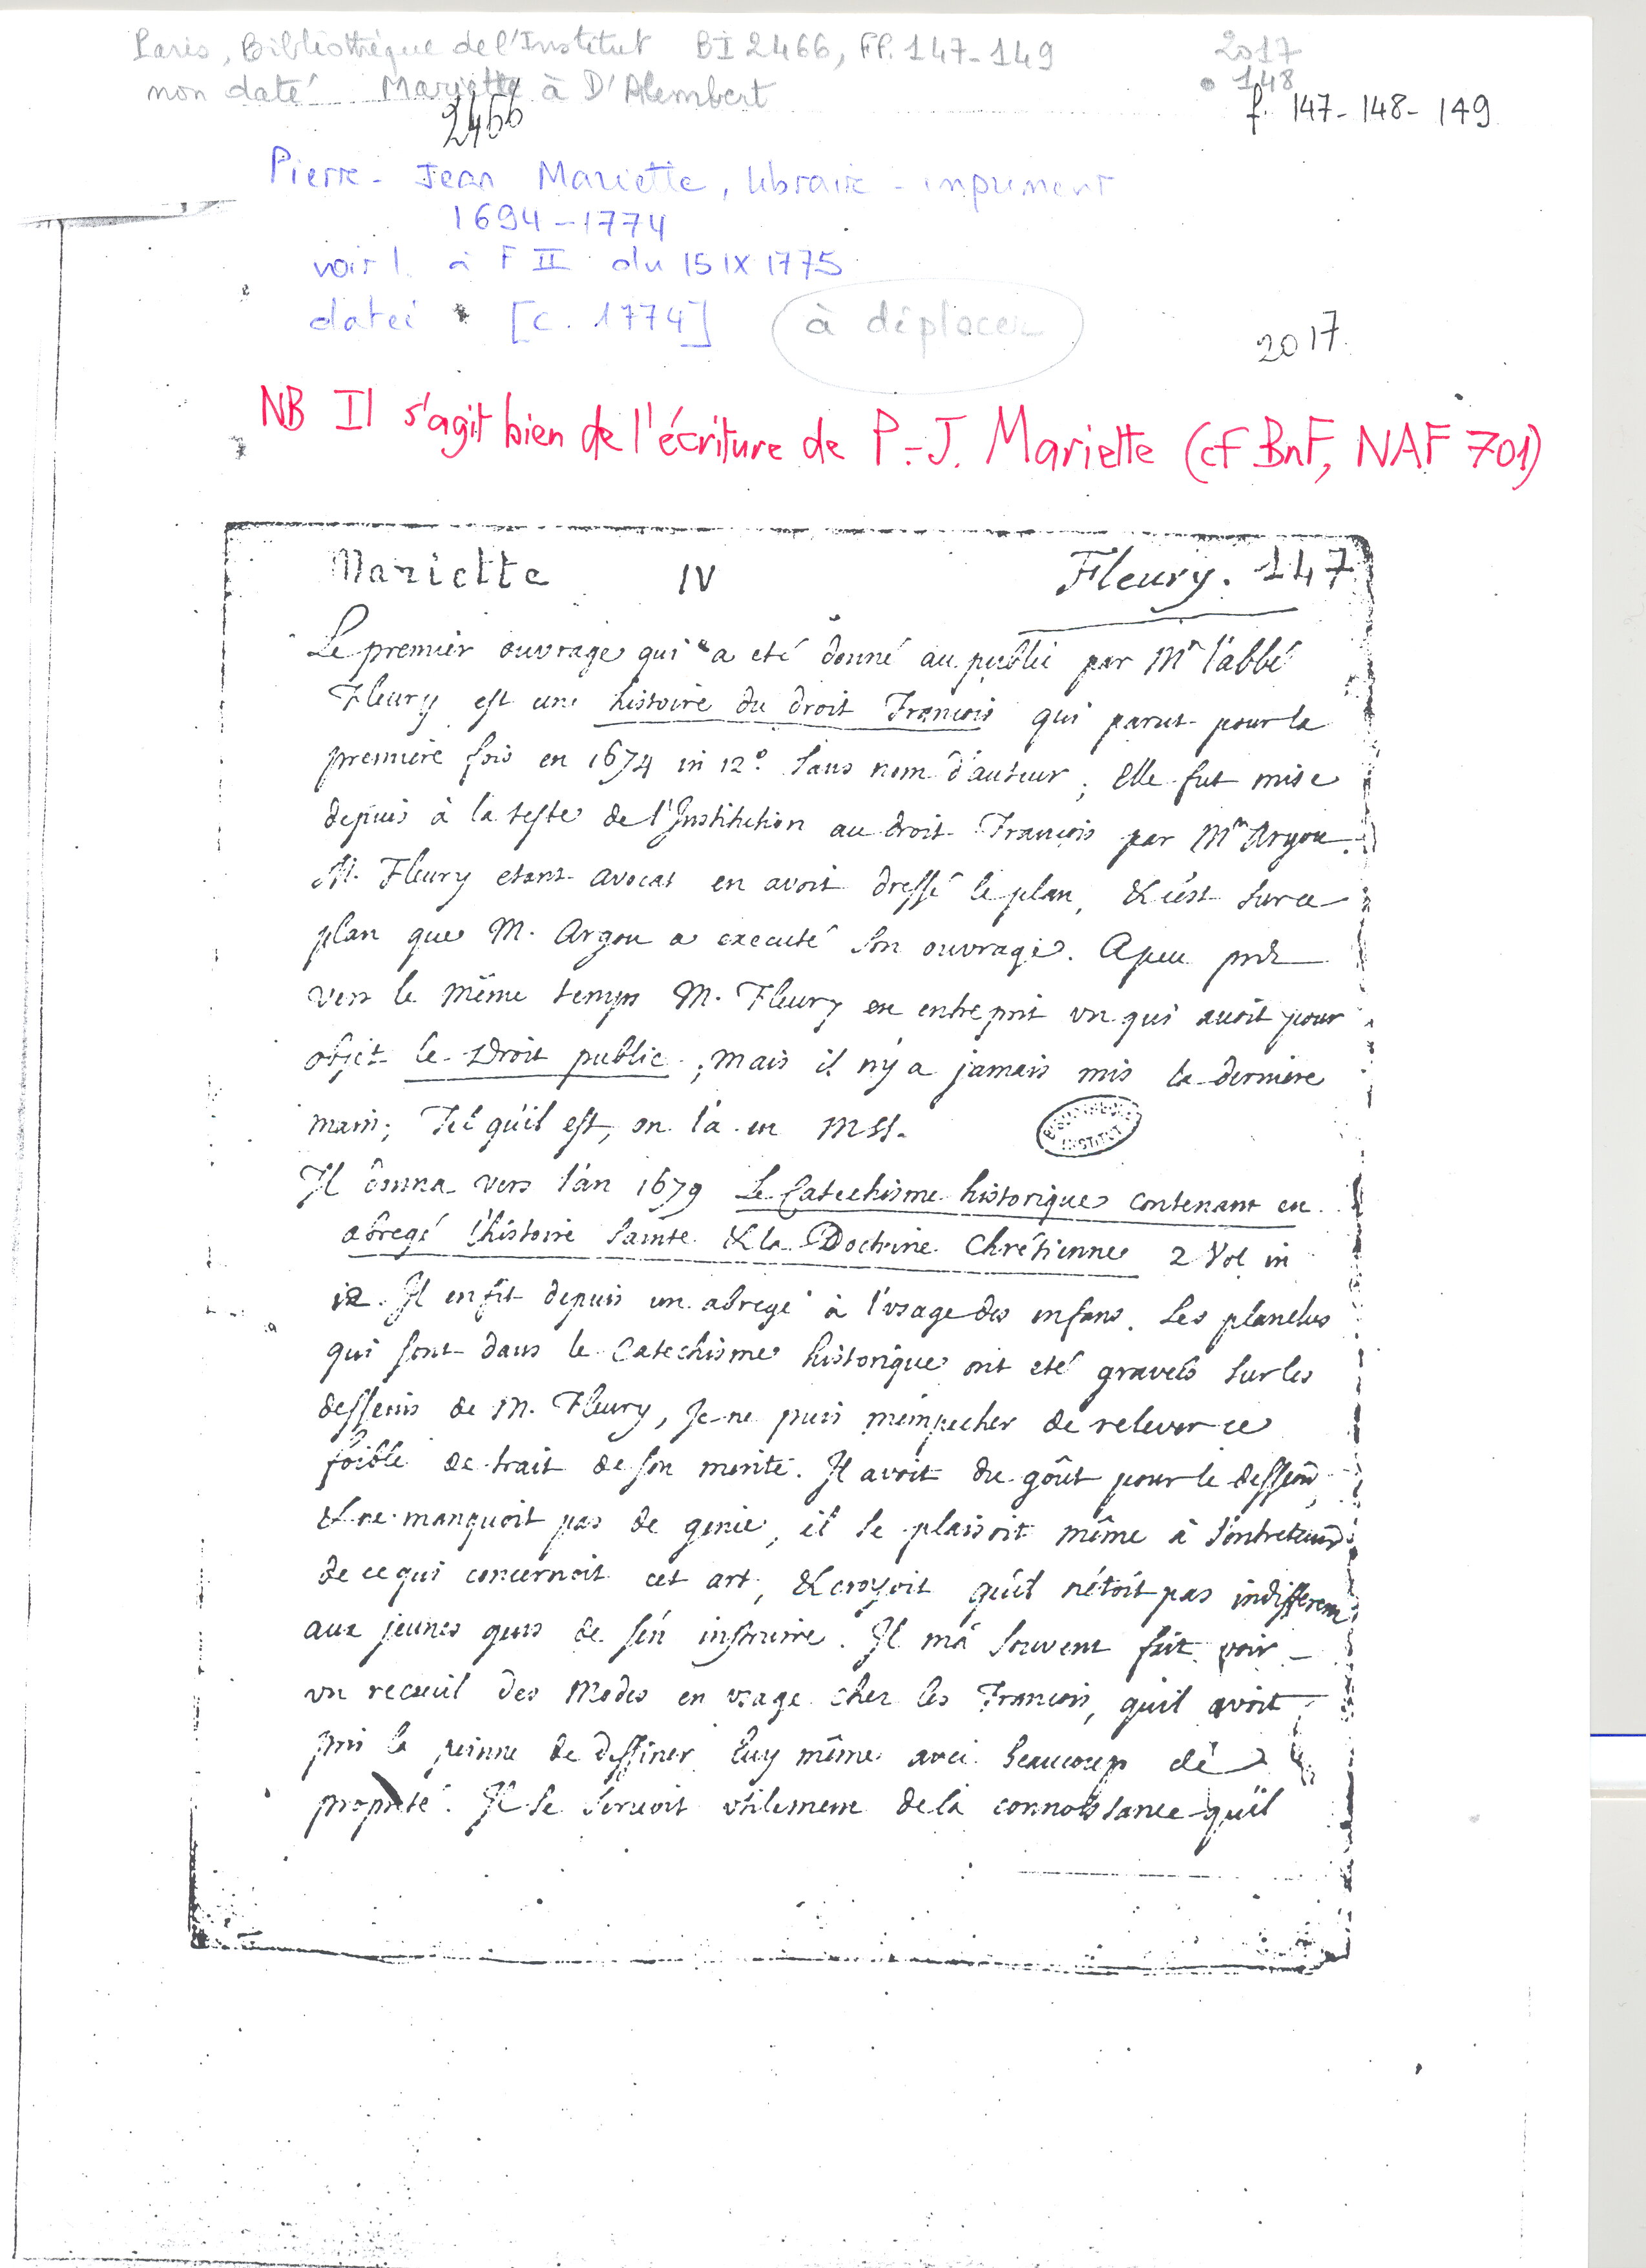 Paris, Bibliothèque de l'Institut BI 2466, ff. 147-149
2017
non daté Mariette à D'Alembert
148
2466
f. 147-148-149
Pierre-Jean Mariette, libraire-imprimeur
1694-1774
voir l. à F II du 15 IX 1775
datée [c. 1774]
à déplacer
2017
NB Il s'agit bien de l'écriture de P.-J. Mariette (cf BnF, NAF 701)
Mariette IV Fleury. 147
Le premier ouvrage qui a eté donné au public par Mr l'abbé
Fleury est une histoire du droit Francois qui parut pour la
premiere fois en 1674 in 12o. sans nom d'auteur; Elle fut mise
depuis à la teste de l'Institution au droit Francois par Mr Argou.
M. Fleury etant avocat en avoit dressé le plan, & c'est sur ce
plan que M. Argou a executé son ouvrage. A peu prez
vers le même temps M. Fleury en entreprit un qui avoit pour
objet le Droit public; mais il n'y a jamais mis la derniere
main; Tel qu'il est, on l'a en mss.
BIBLIOTHEQUE INSTITUT
Il donna vers l'an 1679 Le Catechisme historique contenant en
abregé l'histoire Sainte & la Doctrine Chrétienne 2 Vol in
12. Il en fit depuis un abregé à l'usage des enfans. Les planches
qui sont dans le Catechisme historique ont eté gravées sur les
desseins de M. Fleury, Je ne puis m'empecher de relever ce
foible de trait de son merite. Il avoit du goût pour le dessein,
& ne manquoit pas de genie, il se plaisoit même à s'entretenir
de ce qui concernoit cet art, & croyoit qu'il n'étoit pas indifferent
aux jeunes gens de s'en instruire. Il m'a souvent fait voir
un recueil des Modes en usage chez les Francois, qu'il avoit
pris la peinne de dessiner luy même avec beaucoup de
propreté. Il se servoit utilement de la connoissance qu'il